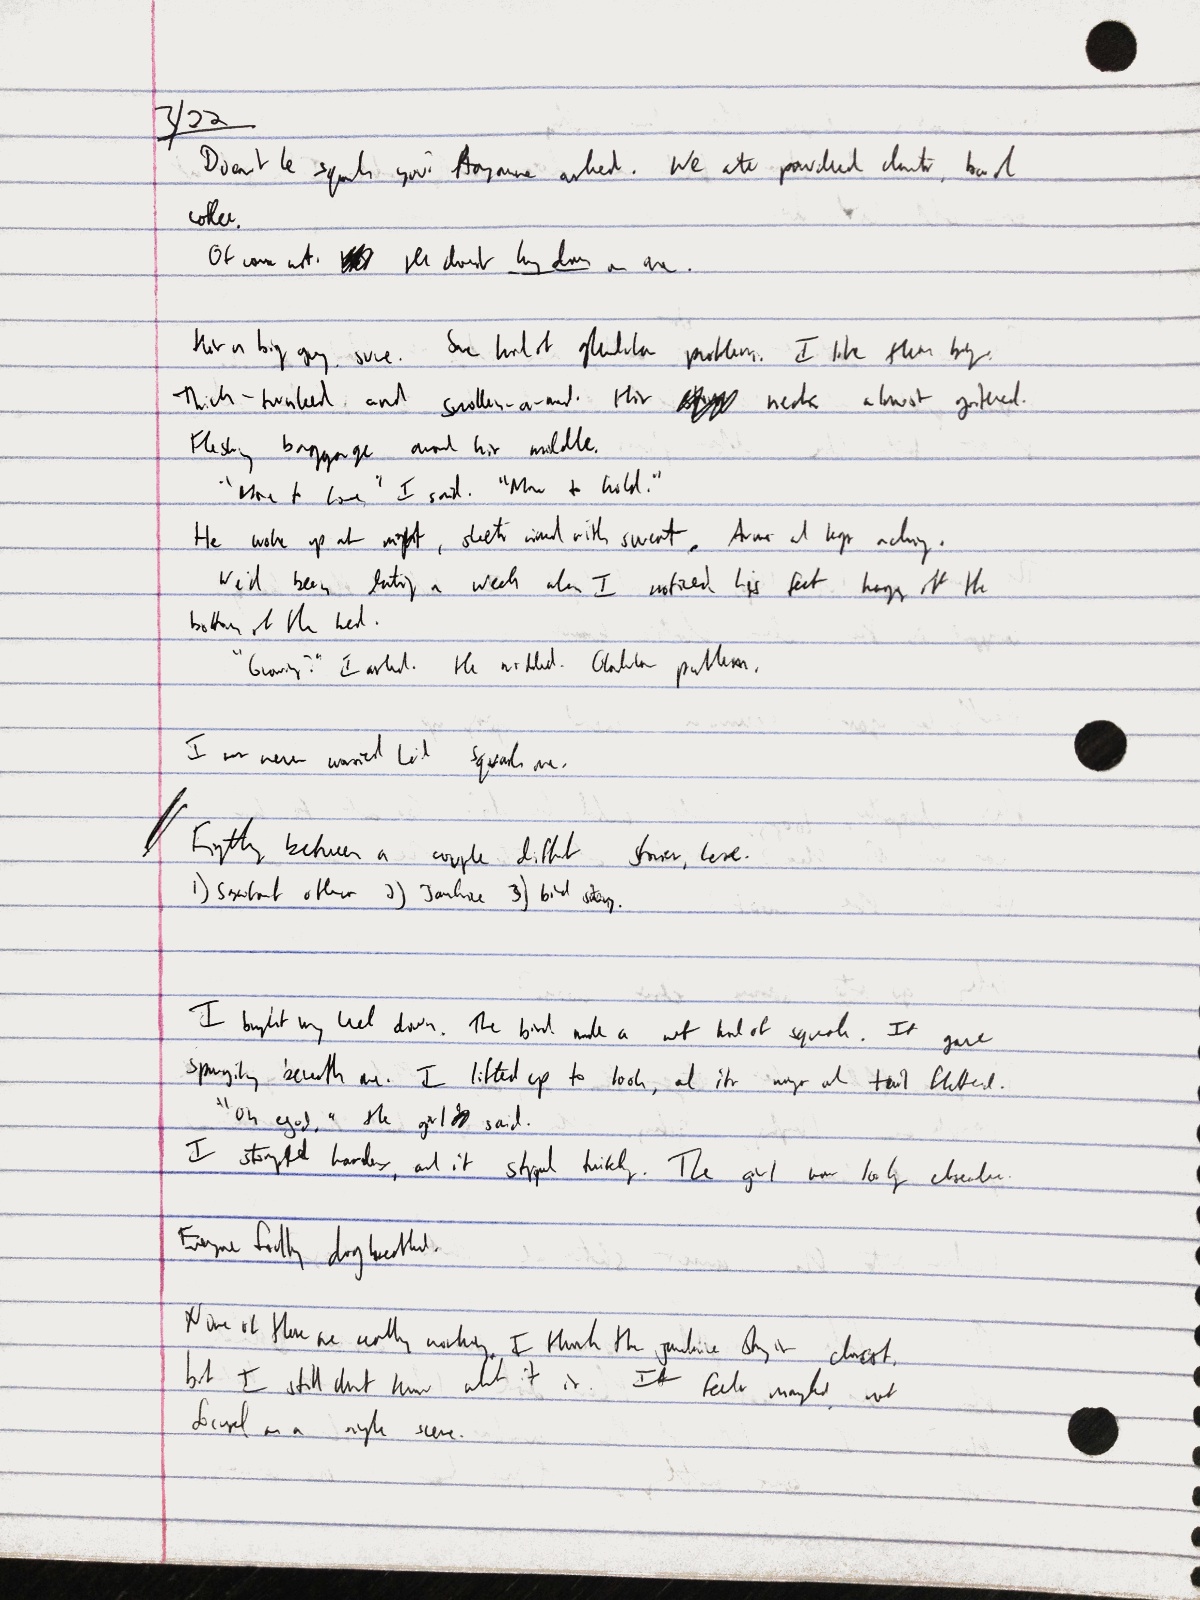 3/22
Doesn't he squash you? asked. We ate powdered donuts, had
coffee.
Of course not. He doesn't lay down on me.
He's a big guy, sure. Some kind of glandular problem. I like them big.
Thick-trunked and swollen-armed. His neck almost
Fleshy baggage around his middle.
"More to love," I said. "More to hold."
He woke up at night, sheets with sweat. Arms and legs aching.
We'd been dating a week when I noticed his feet hang off the
bottom of the bed.
"Growing?" I asked. He nodded. Glandular problem.
I was never worried he'd squash me.
between a couple different stories, here.
1) Significant others 2) Janhire 3) bird story.
I brought my heel down. The bird made a wet kind of squawk. It gave
spongily beneath me. I lifted up to look, and its wings and tail
"Oh egod," the girl said.
I stomped harder, and it stopped twitching. The girl was looking elsewhere.
Everyone
None of these are really working. I think the story is closest,
but I still don't know what it is. It feels mangled, not
focused on a single scene.